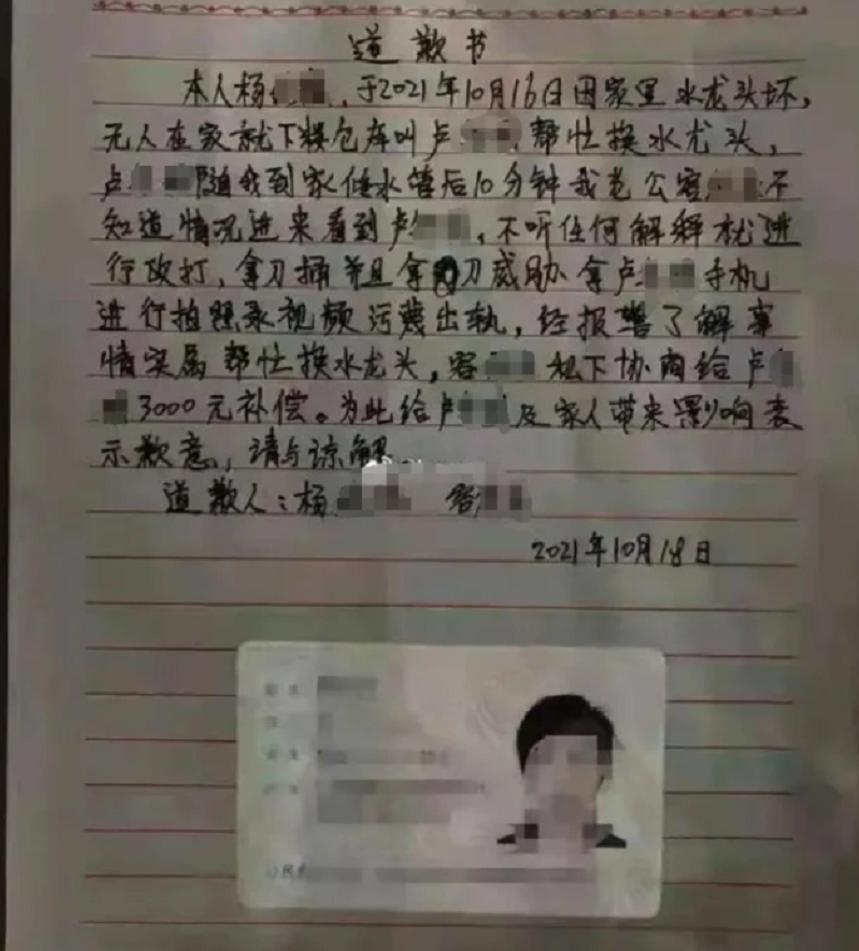 道歉书
本人杨 , 于2021年10月16日因家里水龙头坏,
无人在家就下楼仓库叫卢 帮忙换水龙头,
卢 随我到家修水管后10分钟我老公容 不
知道情况进来看到卢 , 不听任何解释就进
行攻打, 拿刀捅并且拿 刀威胁拿卢 手机
进行拍照录视频污蔑出轨, 经报警了解事
情实属帮忙换水龙头, 容 私下协商给卢
3000元补偿。为此给卢 及家人带来影响表
示歉意, 请与谅解
道歉人: 杨 容
2021年10月18日
公民